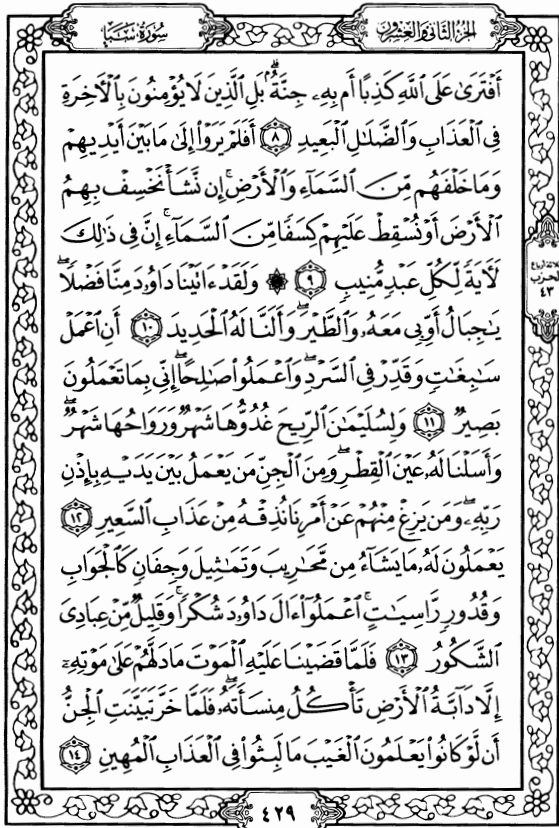 الجزء الثاني والعشرون
سورة سبإ
أَفْتَرَىٰ عَلَى ٱللَّهِ كَذِبًا أَم بِهِۦ جِنَّةٌۢ ۗ بَلِ ٱلَّذِينَ لَا يُؤْمِنُونَ بِٱلْـَٔاخِرَةِ
فِى ٱلْعَذَابِ وَٱلضَّلَـٰلِ ٱلْبَعِيدِ ٨ أَفَلَمْ يَرَوْا۟ إِلَىٰ مَا بَيْنَ أَيْدِيهِمْ
وَمَا خَلْفَهُم مِّنَ ٱلسَّمَآءِ وَٱلْأَرْضِ ۚ إِن نَّشَأْ نَخْسِفْ بِهِمُ
ٱلْأَرْضَ أَوْ نُسْقِطْ عَلَيْهِمْ كِسَفًا مِّنَ ٱلسَّمَآءِ ۚ إِنَّ فِى ذَٰلِكَ
لَـَٔايَةً لِّكُلِّ عَبْدٍ مُّنِيبٍ ٩ ۞ وَلَقَدْ ءَاتَيْنَا دَاوُۥدَ مِنَّا فَضْلًا ۖ
يَـٰجِبَالُ أَوِّبِى مَعَهُۥ وَٱلطَّيْرَ ۖ وَأَلَنَّا لَهُ ٱلْحَدِيدَ ١٠ أَنِ ٱعْمَلْ
سَـٰبِغَـٰتٍ وَقَدِّرْ فِى ٱلسَّرْدِ ۖ وَٱعْمَلُوا۟ صَـٰلِحًا ۖ إِنِّى بِمَا تَعْمَلُونَ
بَصِيرٌ ١١ وَلِسُلَيْمَـٰنَ ٱلرِّيحَ غُدُوُّهَا شَهْرٌ وَرَوَاحُهَا شَهْرٌ ۖ
وَأَسَلْنَا لَهُۥ عَيْنَ ٱلْقِطْرِ ۖ وَمِنَ ٱلْجِنِّ مَن يَعْمَلُ بَيْنَ يَدَيْهِ بِإِذْنِ
رَبِّهِۦ ۖ وَمَن يَزِغْ مِنْهُمْ عَنْ أَمْرِنَا نُذِقْهُ مِنْ عَذَابِ ٱلسَّعِيرِ ١٢
يَعْمَلُونَ لَهُۥ مَا يَشَآءُ مِن مَّحَـٰرِيبَ وَتَمَـٰثِيلَ وَجِفَانٍ كَٱلْجَوَابِ
وَقُدُورٍ رَّاسِيَـٰتٍ ۚ ٱعْمَلُوٓا۟ ءَالَ دَاوُۥدَ شُكْرًا ۚ وَقَلِيلٌ مِّنْ عِبَادِىَ
ٱلشَّكُورُ ١٣ فَلَمَّا قَضَيْنَا عَلَيْهِ ٱلْمَوْتَ مَا دَلَّهُمْ عَلَىٰ مَوْتِهِۦٓ
إِلَّا دَآبَّةُ ٱلْأَرْضِ تَأْكُلُ مِنسَأَتَهُۥ ۖ فَلَمَّا خَرَّ تَبَيَّنَتِ ٱلْجِنُّ
أَن لَّوْ كَانُوا۟ يَعْلَمُونَ ٱلْغَيْبَ مَا لَبِثُوا۟ فِى ٱلْعَذَابِ ٱلْمُهِينِ ١٤
ثلاثة أرباع
الحزب
٤٣
٤٢٩